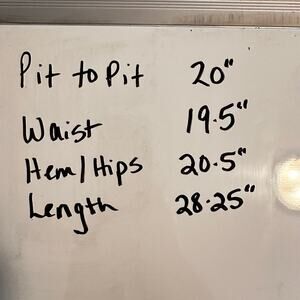 Pit to Pit 20"
Waist 19.5"
Hem/Hips 20.5"
Length 28.25"